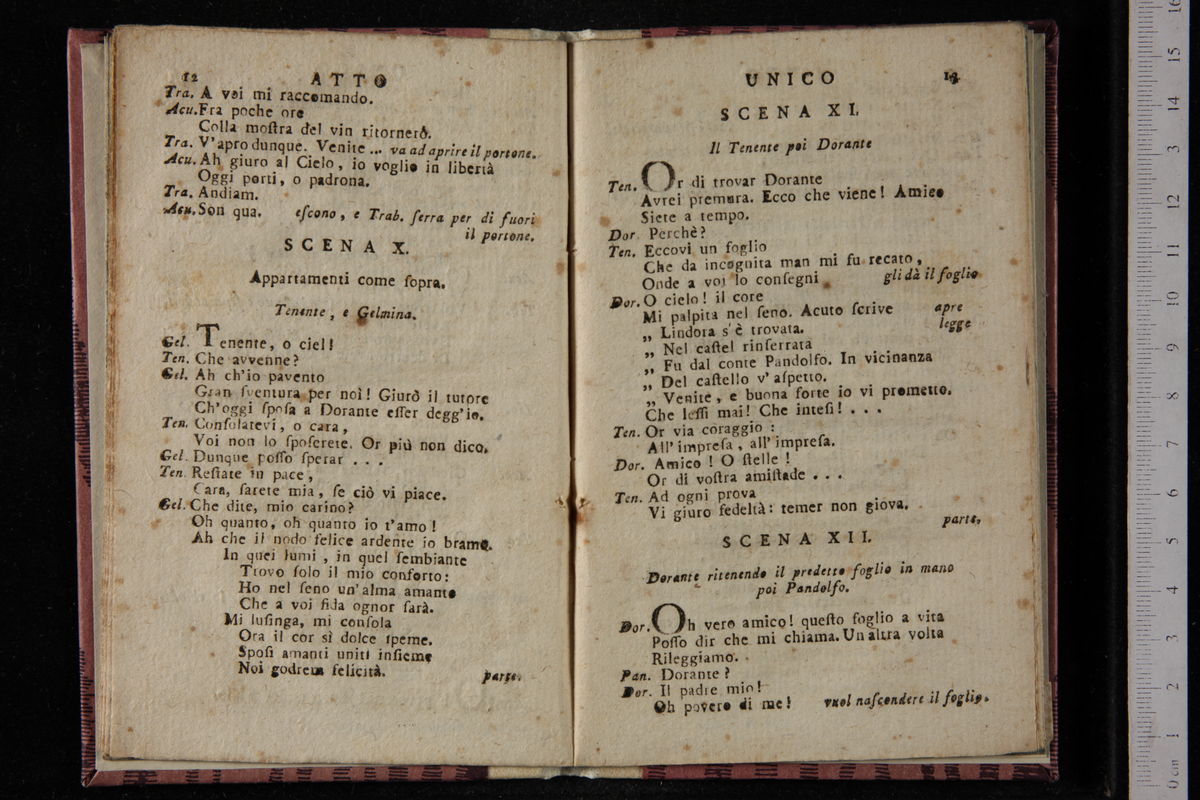 12 ATTO
Tra. A voi mi raccomando.
Acu. Fra poche ore
Colla moſtra del vin ritornerò.
Tra. V'apro dunque. Venite ... va ad aprire il portone.
Acu. Ah giuro al Cielo, io voglio in libertà
Oggi porti, o padrona.
Tra. Andiam.
Acu. Son qua. eſcono, e Trab. ſerra per di fuori
il portone.
SCENA X.
Appartamenti come ſopra.
Tenente, e Gelmina.
Gel. Tenente, o ciel!
Ten. Che avvenne?
Gel. Ah ch'io pavento
Gran ſventura per noi! Giurò il tutore
Ch'oggi ſpoſa a Dorante eſſer degg'io.
Ten. Conſolatevi, o cara,
Voi non lo ſpoſerete. Or più non dico.
Gel. Dunque poſſo ſperar . . .
Ten. Reſtate in pace,
Cara, ſarete mia, ſe ciò vi piace.
Gel. Che dite, mio carino?
Oh quanto, oh quanto io t'amo!
Ah che il nodo felice ardente io bramo.
In quei lumi, in quel ſembiante
Trovo ſolo il mio conforto:
Ho nel ſeno un'alma amante
Che a voi fida ognor ſarà.
Mi luſinga, mi conſola
Ora il cor sì dolce ſpeme.
Spoſi amanti uniti inſieme
Noi godrem felicità. parte.
UNICO 13
SCENA XI.
Il Tenente poi Dorante
Ten. Or di trovar Dorante
Avrei premura. Ecco che viene! Amico
Siete a tempo.
Dor. Perchè?
Ten. Eccovi un foglio
Che da incognita man mi fu recato,
Onde a voi lo conſegni gli dà il foglio
Dor. O cielo! il core
Mi palpita nel ſeno. Acuto ſcrive apre
„ Lindora s'è trovata. legge
„ Nel caſtel rinſerrata
„ Fu dal conte Pandolfo. In vicinanza
„ Del caſtello v'aſpetto.
„ Venite, e buona ſorte io vi prometto.
Che leſſi mai! Che inteſi! . . .
Ten. Or via coraggio:
All'impreſa, all'impreſa.
Dor. Amico! O ſtelle!
Or di voſtra amiſtade . . .
Ten. Ad ogni prova
Vi giuro fedeltà: temer non giova.
parte.
SCENA XII.
Dorante ritenendo il predetto foglio in mano
poi Pandolfo.
Dor. Oh vero amico! queſto foglio a vita
Poſſo dir che mi chiama. Un altra volta
Rileggiamo.
Pan. Dorante?
Dor. Il padre mio!
Oh povero di me! vuol naſcondere il foglio.
16
15
14
13
12
11
10
9
8
7
6
5
4
3
2
1
0 cm